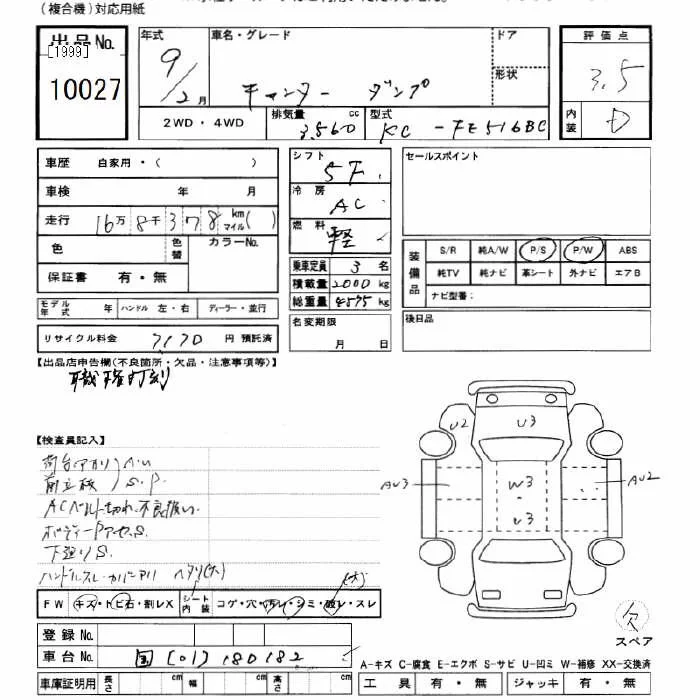 (複合機)対応用紙
出品No.
[1999]
10027
年式 9/2月
車名・グレード キャンター ダンプ
ドア
形状
2WD・4WD
排気量 3,560 cc
型式 KC-FE516BC
評価点 3.5
内装 D
車歴 自家用・( )
車検 年 月
走行 16万8千378 km マイル( )
色 色替 カラーNo.
保証書 有・無
モデル年式 年 ハンドル 左・右 ディーラー・並行
リサイクル料金 7170 円 預託済
シフト 5F
冷房 AC
燃料 軽
乗車定員 3 名
積載量 2000 kg
総重量 4575 kg
名変期限
月 日
セールスポイント
装備品 S/R 純A/W P/S P/W ABS
純TV 純ナビ 革シート 外ナビ エアB
ナビ型番:
後日品
【出品店申告欄(不良箇所・欠品・注意事項等)】
職権打刻
【検査員記入】
荷台(アオリ)A.U
S.P.
ACベルト切れ 不良扱い
下廻りS.
ハンドルスレ・カバーアリ ヘタリ(大)
(大)
FW キズ・トビ石・割レX シート内装 コゲ・穴・汚レ・シミ・破レ・スレ
登録No.
車台No. 国[01]180182
車庫証明用 長さ cm 幅 cm 高さ cm
U2
U3
AU3
W3
U3
AU2
欠
スペア
A-キズ C-腐食 E-エクボ S-サビ U-凹ミ W-補修 XX-交換済
工具 有・無 ジャッキ 有・無